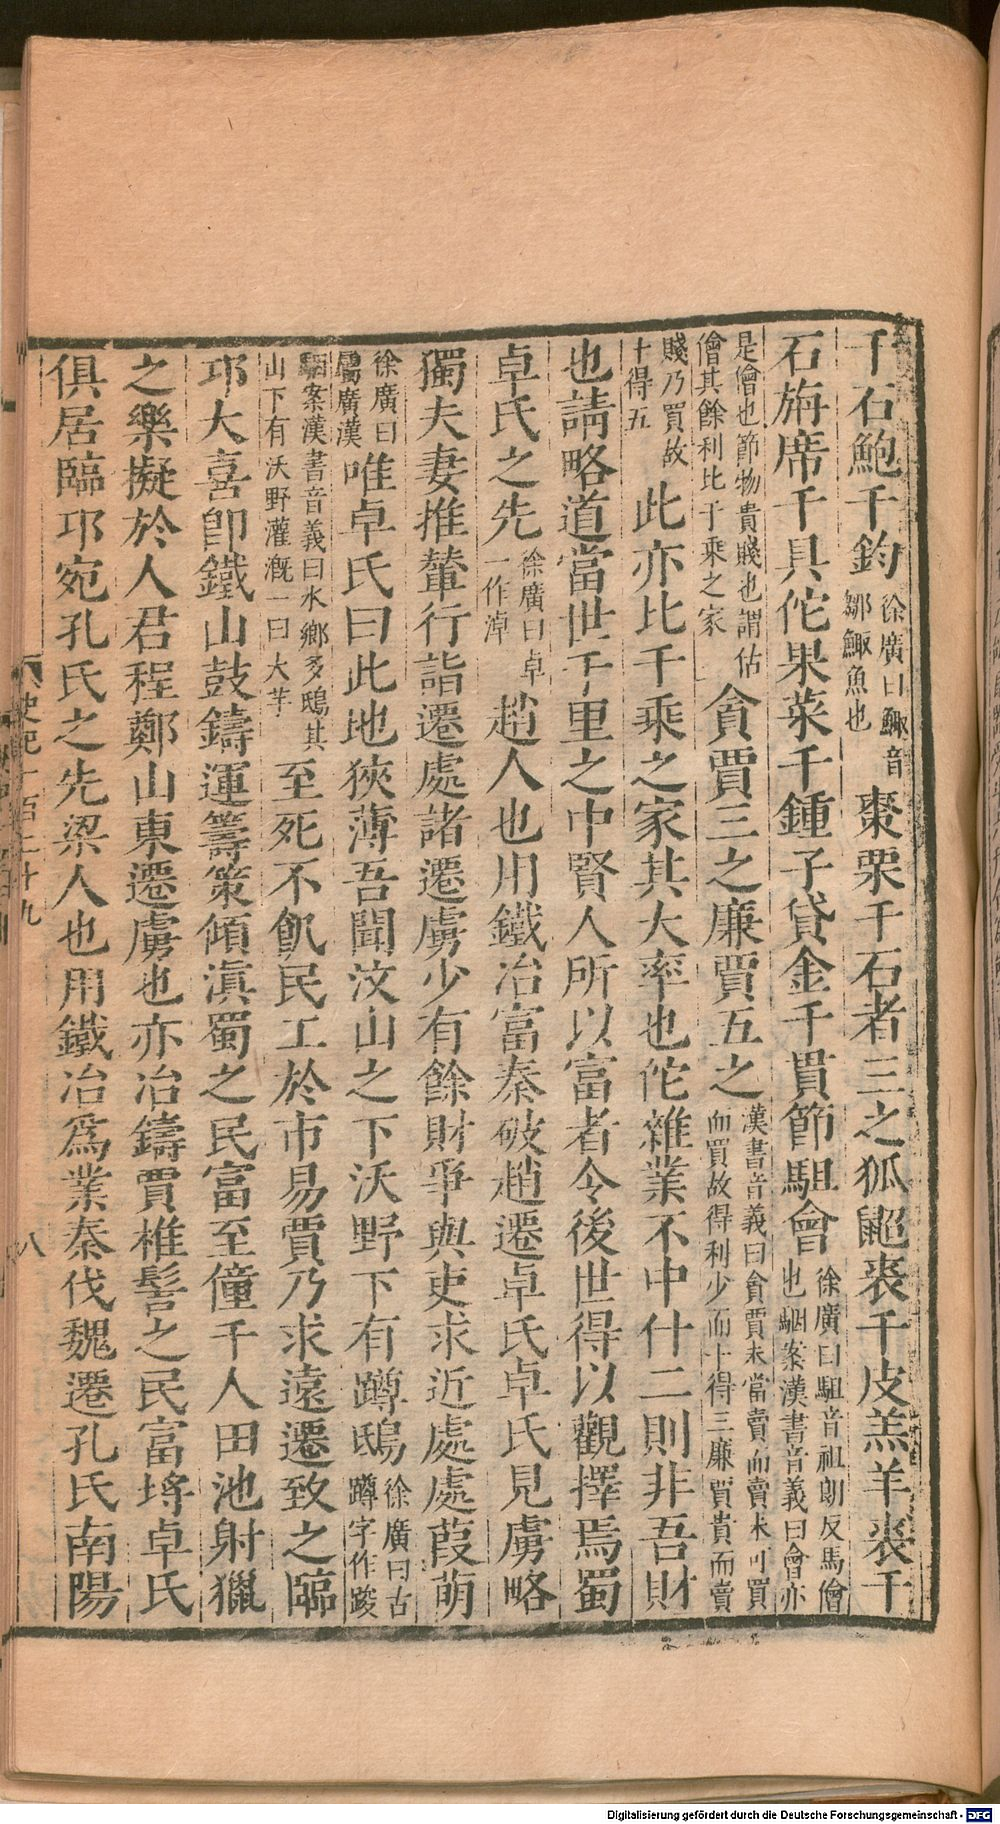 千石鮑千鈞徐廣曰鯫音鄒鯫魚也棗栗千石者三之狐鼦裘千皮羔羊裘千
石旃席千具佗果菜千鍾子貸金千貫節駔會徐廣曰駔音祖朗反馬儈也駰案漢書音義曰會亦
是儈也節物貴賤也謂估儈其餘利比于乘之家貪賈三之廉賈五之漢書音義曰貪賈未當賣而賣未可買而買故得利少而十得三廉賈貴而賣
賤乃買故十得五此亦比千乘之家其大率也佗雜業不中什二則非吾財
也請略道當世千里之中賢人所以富者令後世得以觀擇焉蜀
卓氏之先徐廣曰卓一作淖趙人也用鐵冶富秦破趙遷卓氏卓氏見虜略
獨夫妻推輦行詣遷處諸遷虜少有餘財爭與吏求近處處葭萌
徐廣曰屬廣漢唯卓氏曰此地狹薄吾聞汶山之下沃野下有蹲鴟徐廣曰古蹲字作踆
駰案漢書音義曰水鄉多鴟其山下有沃野灌溉一曰大芋至死不飢民工於市易賈乃求遠遷致之臨
邛大喜即鐵山鼓鑄運籌策傾滇蜀之民富至僮千人田池射獵
之樂擬於人君程鄭山東遷虜也亦冶鑄賈椎髻之民富埒卓氏
俱居臨邛宛孔氏之先梁人也用鐵冶為業秦伐魏遷孔氏南陽
史記一百二十九
八
Digitalisierung gefördert durch die Deutsche Forschungsgemeinschaft - DFG